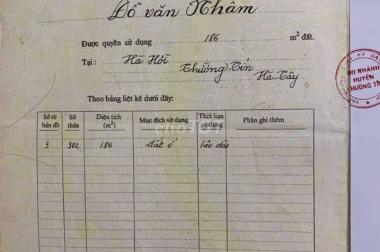 Đỗ văn Nhâm
Được quyền sử dụng 186 m² đất.
Tại: Hà Hồi
Thường Tín
Hà Tây
Theo bảng liệt kê dưới đây:
Số tờ bản đồ Số thửa Diện tích (m²) Mục đích sử dụng Thời hạn sử dụng Phần ghi thêm
3 302 186 đất ở lâu dài
CHI NHÁNH
HUYỆN
THƯỜNG TÍN